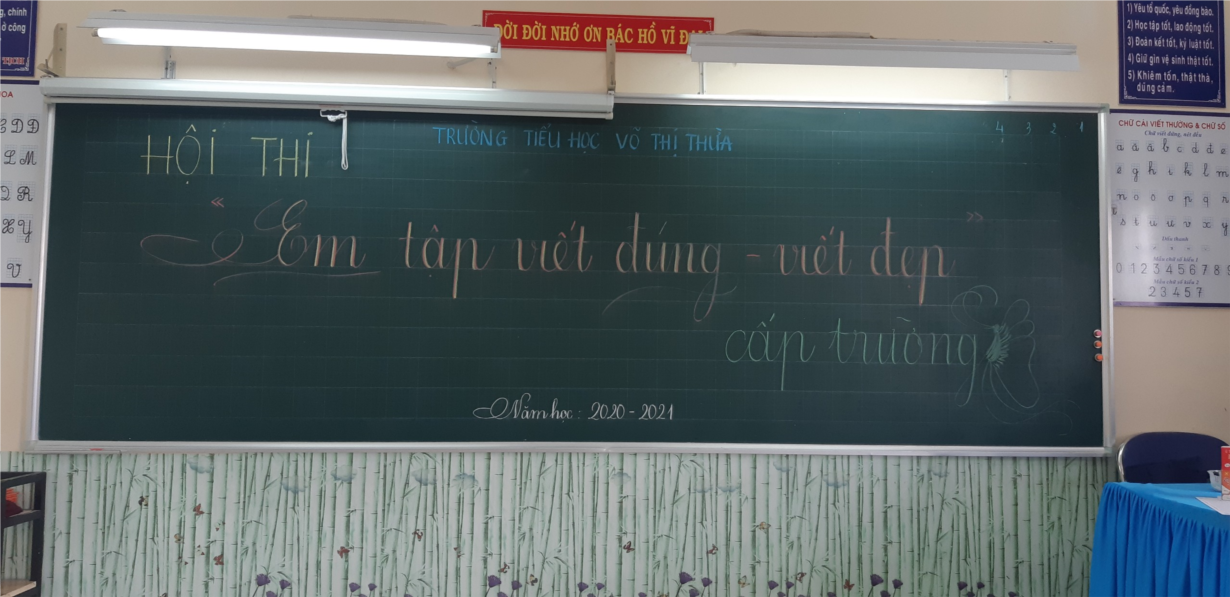 g, chính
ở công
ĐỜI ĐỜI NHỚ ƠN BÁC HỒ VĨ ĐẠI
1) Yêu tổ quốc, yêu đồng bào.
2) Học tập tốt, lao động tốt.
3) Đoàn kết tốt, kỷ luật tốt.
4) Giữ gìn vệ sinh thật tốt.
5) Khiêm tốn, thật thà,
dũng cảm.
HOA
D Đ
L M
Q R
X Y
V
HỘI THI
TRƯỜNG TIỂU HỌC VÕ THỊ THỪA
4 3 2 1
“Em tập viết đúng - viết đẹp”
cấp trường
Năm học: 2020 - 2021
CHỮ CÁI VIẾT THƯỜNG & CHỮ SỐ
Chữ viết đứng, nét đều
a ă â b c d đ e
ê g h i k l m
n o ô ơ p q r
s t u ư v x y
Dấu thanh
Mẫu chữ số kiểu 1
0 1 2 3 4 5 6 7 8 9
Mẫu chữ số kiểu 2
2 3 4 5 7